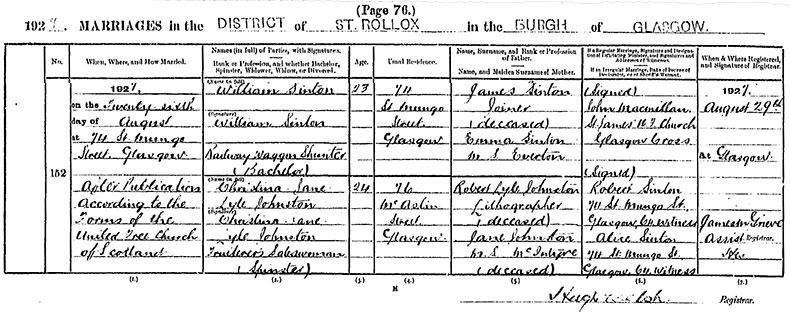 (Page 76.)
1927. MARRIAGES in the DISTRICT of ST. ROLLOX in the BURGH of GLASGOW.
No.
When, Where, and How Married.
Names (in full) of Parties, with Signatures.
Rank or Profession, and whether Bachelor, Spinster, Widower, Widow, or Divorced.
Age.
Usual Residence.
Name, Surname, and Rank or Profession of Father.
Name, and Maiden Surname of Mother.
If a Regular Marriage, Signatures and Designation of Officiating Minister, and Signatures and Addresses of Witnesses.
If an Irregular Marriage, Date of Decree of Declarator, or of Sheriff's Warrant.
When & Where Registered, and Signature of Registrar.
152
1927,
on the Twenty sixth
day of August
at 74 St. Mungo
Street, Glasgow
After Publication
According to the
Forms of the
United Free Church
of Scotland
(Name in full)
William Sinton
(Signature)
William Sinton
Railway Waggon Shunter
(Bachelor)
(Name in full)
Christina Jane
Lyle Johnston
(Signature)
Christina Jane
Lyle Johnston
Fruiterer's Saleswoman
(Spinster)
23
24
74
St. Mungo
Street
Glasgow
76
McAslin
Street
Glasgow
James Sinton
Joiner
(deceased)
Emma Sinton
m.s.
Robert Lyle Johnston
Lithographer
(deceased)
Jane Johnston
m.s. McIntyre
(deceased)
(Signed)
John Macmillan
St. James U.F. Church
Glasgow Cross
(Signed)
Robert Sinton
74 St. Mungo St.
Glasgow, C4, Witness
Alice Sinton
74 St. Mungo St.
Glasgow, C4, Witness
1927,
August 29th
at Glasgow
James M Grieve
Assist Registrar.
(1.)
(2.)
(3.)
(4.)
(5.)
(6.)
(7.)
M
Hugh
Registrar.